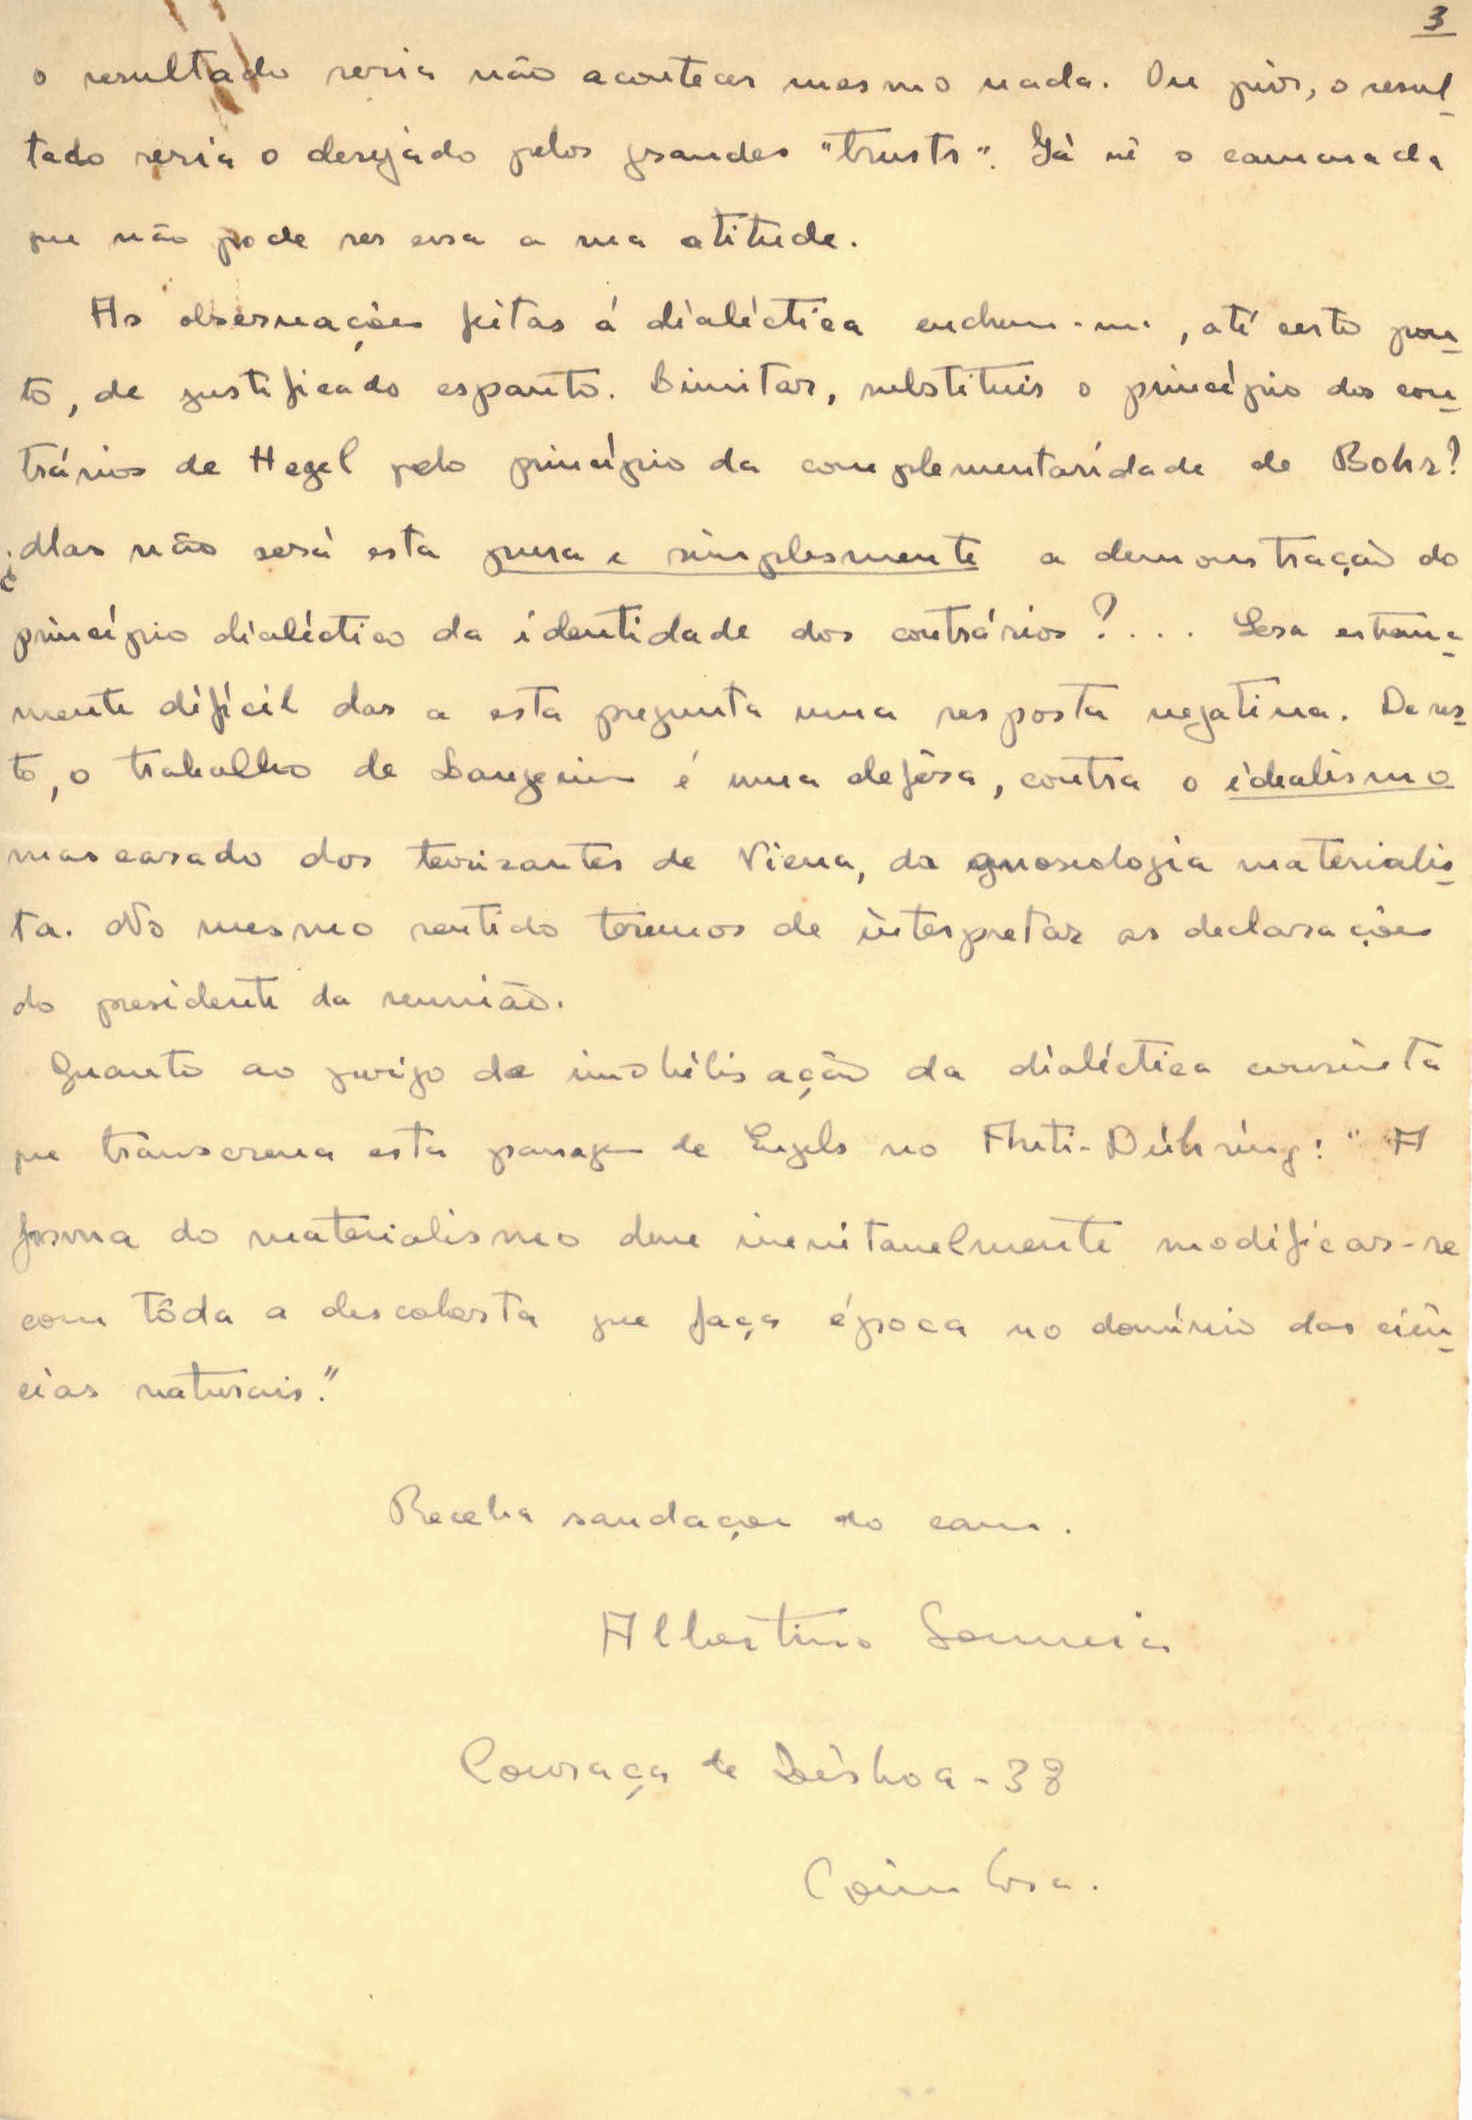 3
o resultado seria não acontecer mesmo nada. Ou piór, o resul-
tado seria o desejádo pelos grandes "trusts". Já vê o camarada
que não pode ser essa a sua atitude.
As observações feitas á dialéctica enchem-me, até certo pon-
to, de justificado espanto. Limitar, substituir o princípio dos con-
trários de Hegel pelo princípio da complementaridade de Bohr?
¿Mas não será esta pura e simplesmente a demonstração do
princípio dialéctico da identidade dos contrários?... Sera extrema-
mente difícil dar a esta pregunta uma resposta negativa. De res-
to, o trabalho de Langevin é uma defêsa, contra o idealismo
mascarado dos teorizantes de Viena, da gnoseologia materialis-
ta. No mesmo sentido teremos de interpretar as declarações
do presidente da reunião.
Quanto ao perigo de imobilisação da dialéctica consinta
que transcreva esta passagem de Engels no Anti-Dühring: "A
forma do materialismo deve inevitavelmente modificar-se
com tôda a descoberta que faça época no domínio das ciên-
cias naturais."
Receba saudações do cam.
Albertino Gouveia
Couraça de Lisboa - 38
Coimbra.